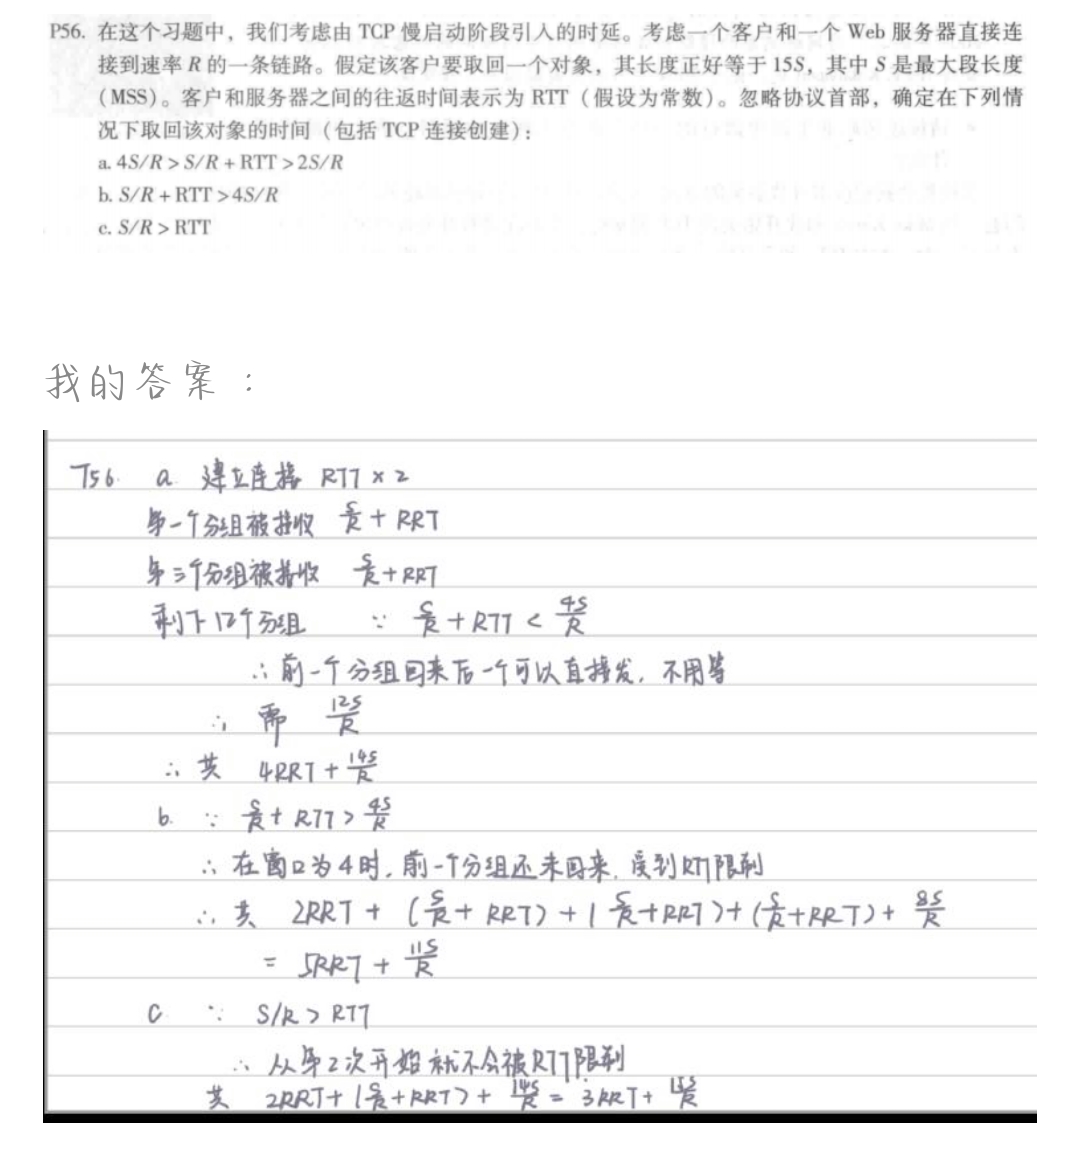 P56. 在这个习题中，我们考虑由 TCP 慢启动阶段引入的时延。考虑一个客户和一个 Web 服务器直接连
接到速率 R 的一条链路。假定该客户要取回一个对象，其长度正好等于 15S，其中 S 是最大段长度
（MSS）。客户和服务器之间的往返时间表示为 RTT（假设为常数）。忽略协议首部，确定在下列情
况下取回该对象的时间（包括 TCP 连接创建）：
a. 4S/R > S/R + RTT > 2S/R
b. S/R + RTT > 4S/R
c. S/R > RTT
我的答案：
T56. a. 建立连接 RTT × 2
第一个分组被接收 S/R + RRT
第三个分组被接收 S/R + RRT
剩下12个分组 ∵ S/R + RTT < 4S/R
∴ 前一个分组回来后一个可以直接发，不用等
∴ 需 12S/R
∴ 共 4RRT + 14S/R
b. ∵ S/R + RTT > 4S/R
∴ 在窗口为4时，前一个分组还未回来，受到RTT限制
∴ 共 2RRT + (S/R + RRT) + (S/R + RRT) + (S/R + RRT) + 8S/R
= 5RRT + 11S/R
C ∵ S/R > RTT
∴ 从第2次开始就不会被RTT限制
共 2RRT + (S/R + RRT) + 14S/R = 3RRT + 15S/R